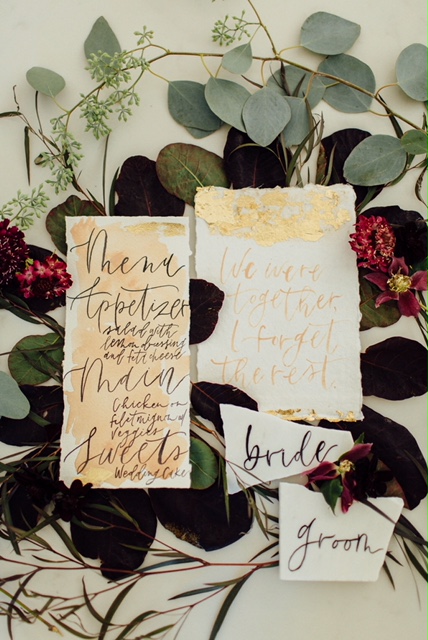 Menu
Appetizer
salad with
lemon dressing
and feta cheese
Main
Chicken or
filet mignon w/
veggies
Sweets
Wedding Cake
We were
together,
I forget
the rest.
bride
groom